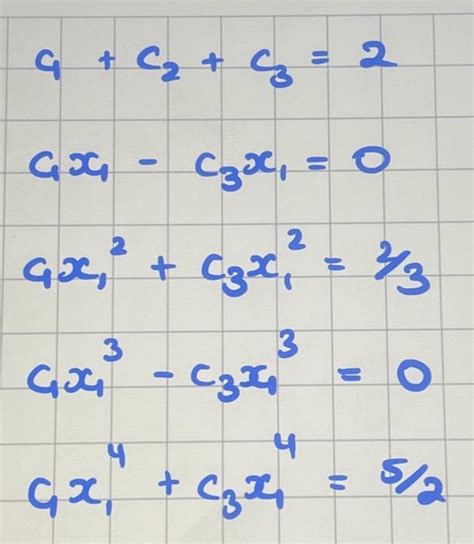 c₁ + c₂ + c₃ = 2
c₁x₁ - c₃x₁ = 0
c₁x₁² + c₃x₁² = 2/3
c₁x₁³ - c₃x₁³ = 0
c₁x₁⁴ + c₃x₁⁴ = 5/2